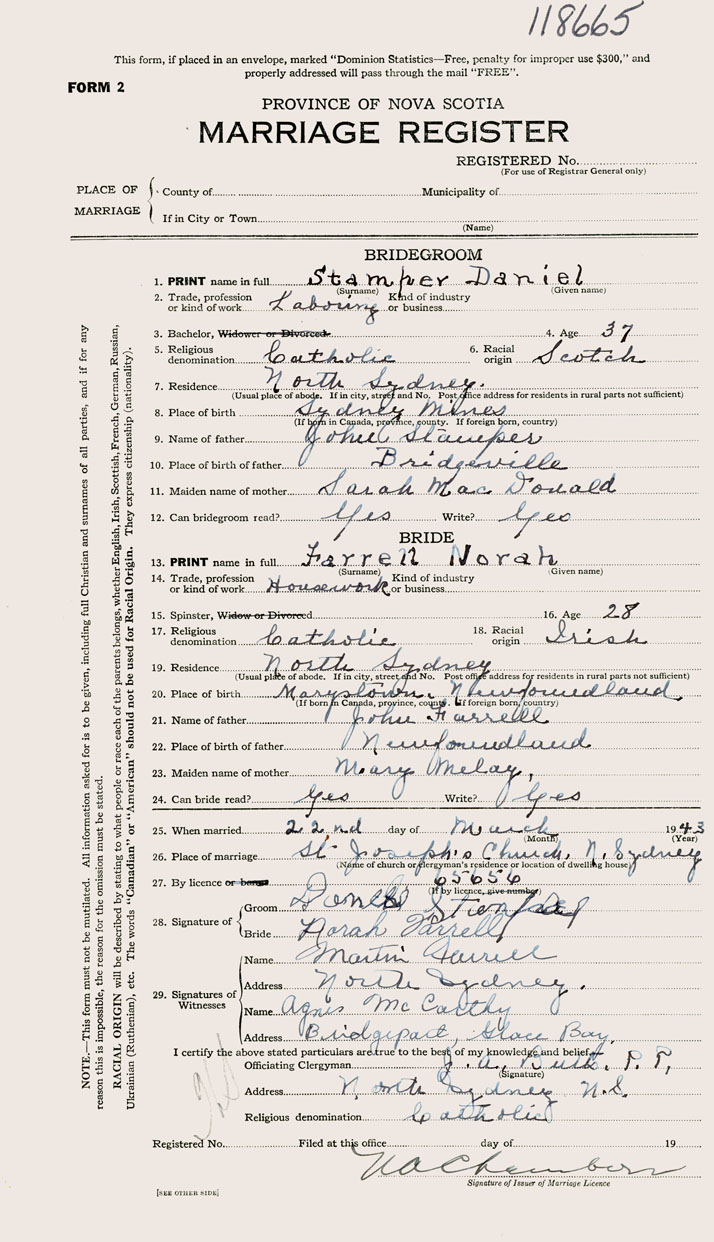 118665
This form, if placed in an envelope, marked "Dominion Statistics—Free, penalty for improper use $300," and
properly addressed will pass through the mail "FREE".
FORM 2
PROVINCE OF NOVA SCOTIA
MARRIAGE REGISTER
REGISTERED No.
(For use of Registrar General only)
PLACE OF MARRIAGE
County of Municipality of
If in City or Town
(Name)
BRIDEGROOM
1. PRINT name in full Stamper Daniel
(Surname) (Given name)
2. Trade, profession or kind of work Laboring Kind of industry or business
3. Bachelor, Widower or Divorced. 4. Age 37
5. Religious denomination Catholic 6. Racial origin Scotch
7. Residence North Sydney.
(Usual place of abode. If in city, street and No. Post office address for residents in rural parts not sufficient)
8. Place of birth Sydney Mines
(If born in Canada, province, county. If foreign born, country)
9. Name of father John Stamper
10. Place of birth of father Bridgeville
11. Maiden name of mother Sarah Mac Donald
12. Can bridegroom read? Yes Write? Yes
BRIDE
13. PRINT name in full Farrell Norah
(Surname) (Given name)
14. Trade, profession or kind of work Housework Kind of industry or business
15. Spinster, Widow or Divorced 16. Age 28
17. Religious denomination Catholic 18. Racial origin Irish
19. Residence North Sydney
(Usual place of abode. If in city, street and No. Post office address for residents in rural parts not sufficient)
20. Place of birth Marystown, Newfoundland
(If born in Canada, province, county. If foreign born, country)
21. Name of father John Farrell
22. Place of birth of father Newfoundland
23. Maiden name of mother Mary
24. Can bride read? Yes Write? Yes
25. When married 22nd day of March 1943
(Month) (Year)
26. Place of marriage St. Joseph's Church, N. Sydney
(Name of church or clergyman's residence or location of dwelling house)
27. By licence or banns 65656
(If by licence, give number)
28. Signature of
Groom
Bride Norah Farrell
29. Signatures of Witnesses
Name Martin Farrell
Address North Sydney.
Name Agnes McCarthy
Address Bridgeport, Glace Bay,
I certify the above stated particulars are true to the best of my knowledge and belief.
Officiating Clergyman J. A. Butts, P. P.,
(Signature)
Address North Sydney N.S.
Religious denomination Catholic
Registered No. Filed at this office day of 19
Signature of Issuer of Marriage Licence
[SEE OTHER SIDE]
NOTE.—This form must not be mutilated. All information asked for is to be given, including full Christian and surnames of all parties, and if for any
reason this is impossible, the reason for the omission must be stated.
RACIAL ORIGIN will be described by stating to what people or race each of the parents belongs, whether English, Irish, Scottish, French, German, Russian,
Ukrainian (Ruthenian), etc. The words "Canadian" or "American" should not be used for Racial Origin. They express citizenship (nationality).